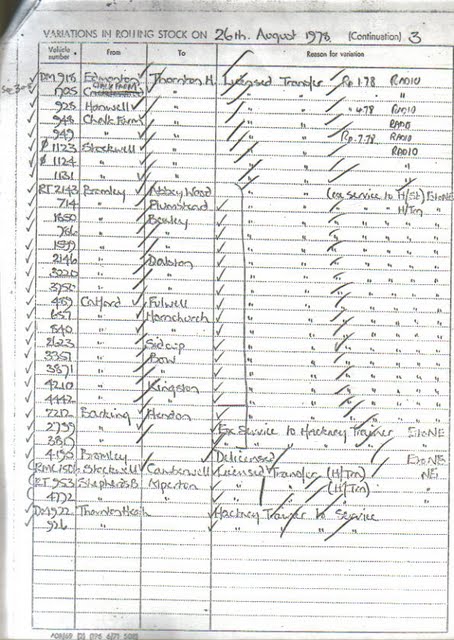 VARIATIONS IN ROLLING STOCK ON 26th. August 1978 (Continuation) 3
Vehicle number From To Reason for variation
DM 918 Edmonton Thornton H. Licensed Transfer Rp 1.78 RADIO
925 Chalk Farm " " " "
928 Hanwell " " " 4.78 RADIO
948 Chalk Farm " " " RADIO
949 " " " Rp. 7.78 RADIO
1123 Stockwell " " "
1124 " " " "
1131 " " " "
RT 2143 Bromley Abbey Wood " " (ex service to H/St) E to NE
714 " Plumstead " " " H/Trn "
1650 " Bexley " " " " "
786 " " " " " " "
1599 " " " " " " "
2146 " Dalston " " " " "
3220 " " " " " " "
3750 " " " " " " "
489 Catford Fulwell " " " " "
657 " Hornchurch " " " " "
840 " " " " " " "
2623 " Sidcup " " " " "
3357 " Bow " " " " "
3871 " " " " " " "
4210 " Kingston " " " " "
4442 " " " " " " "
2212 Barking Hendon " " " " "
2799 " Ex Service to Hackney Trainer E to NE
" " " " " "
4190 Bromley Delicensed E to NE
Stockwell Camberwell Licensed Transfer (H/Trn) NE
RT 953 Shepherds B. Alperton " " (H/Trn) "
4792 " " " " " "
DM 922 Thornton Heath Hackney Trainer to Service
926 " " " "